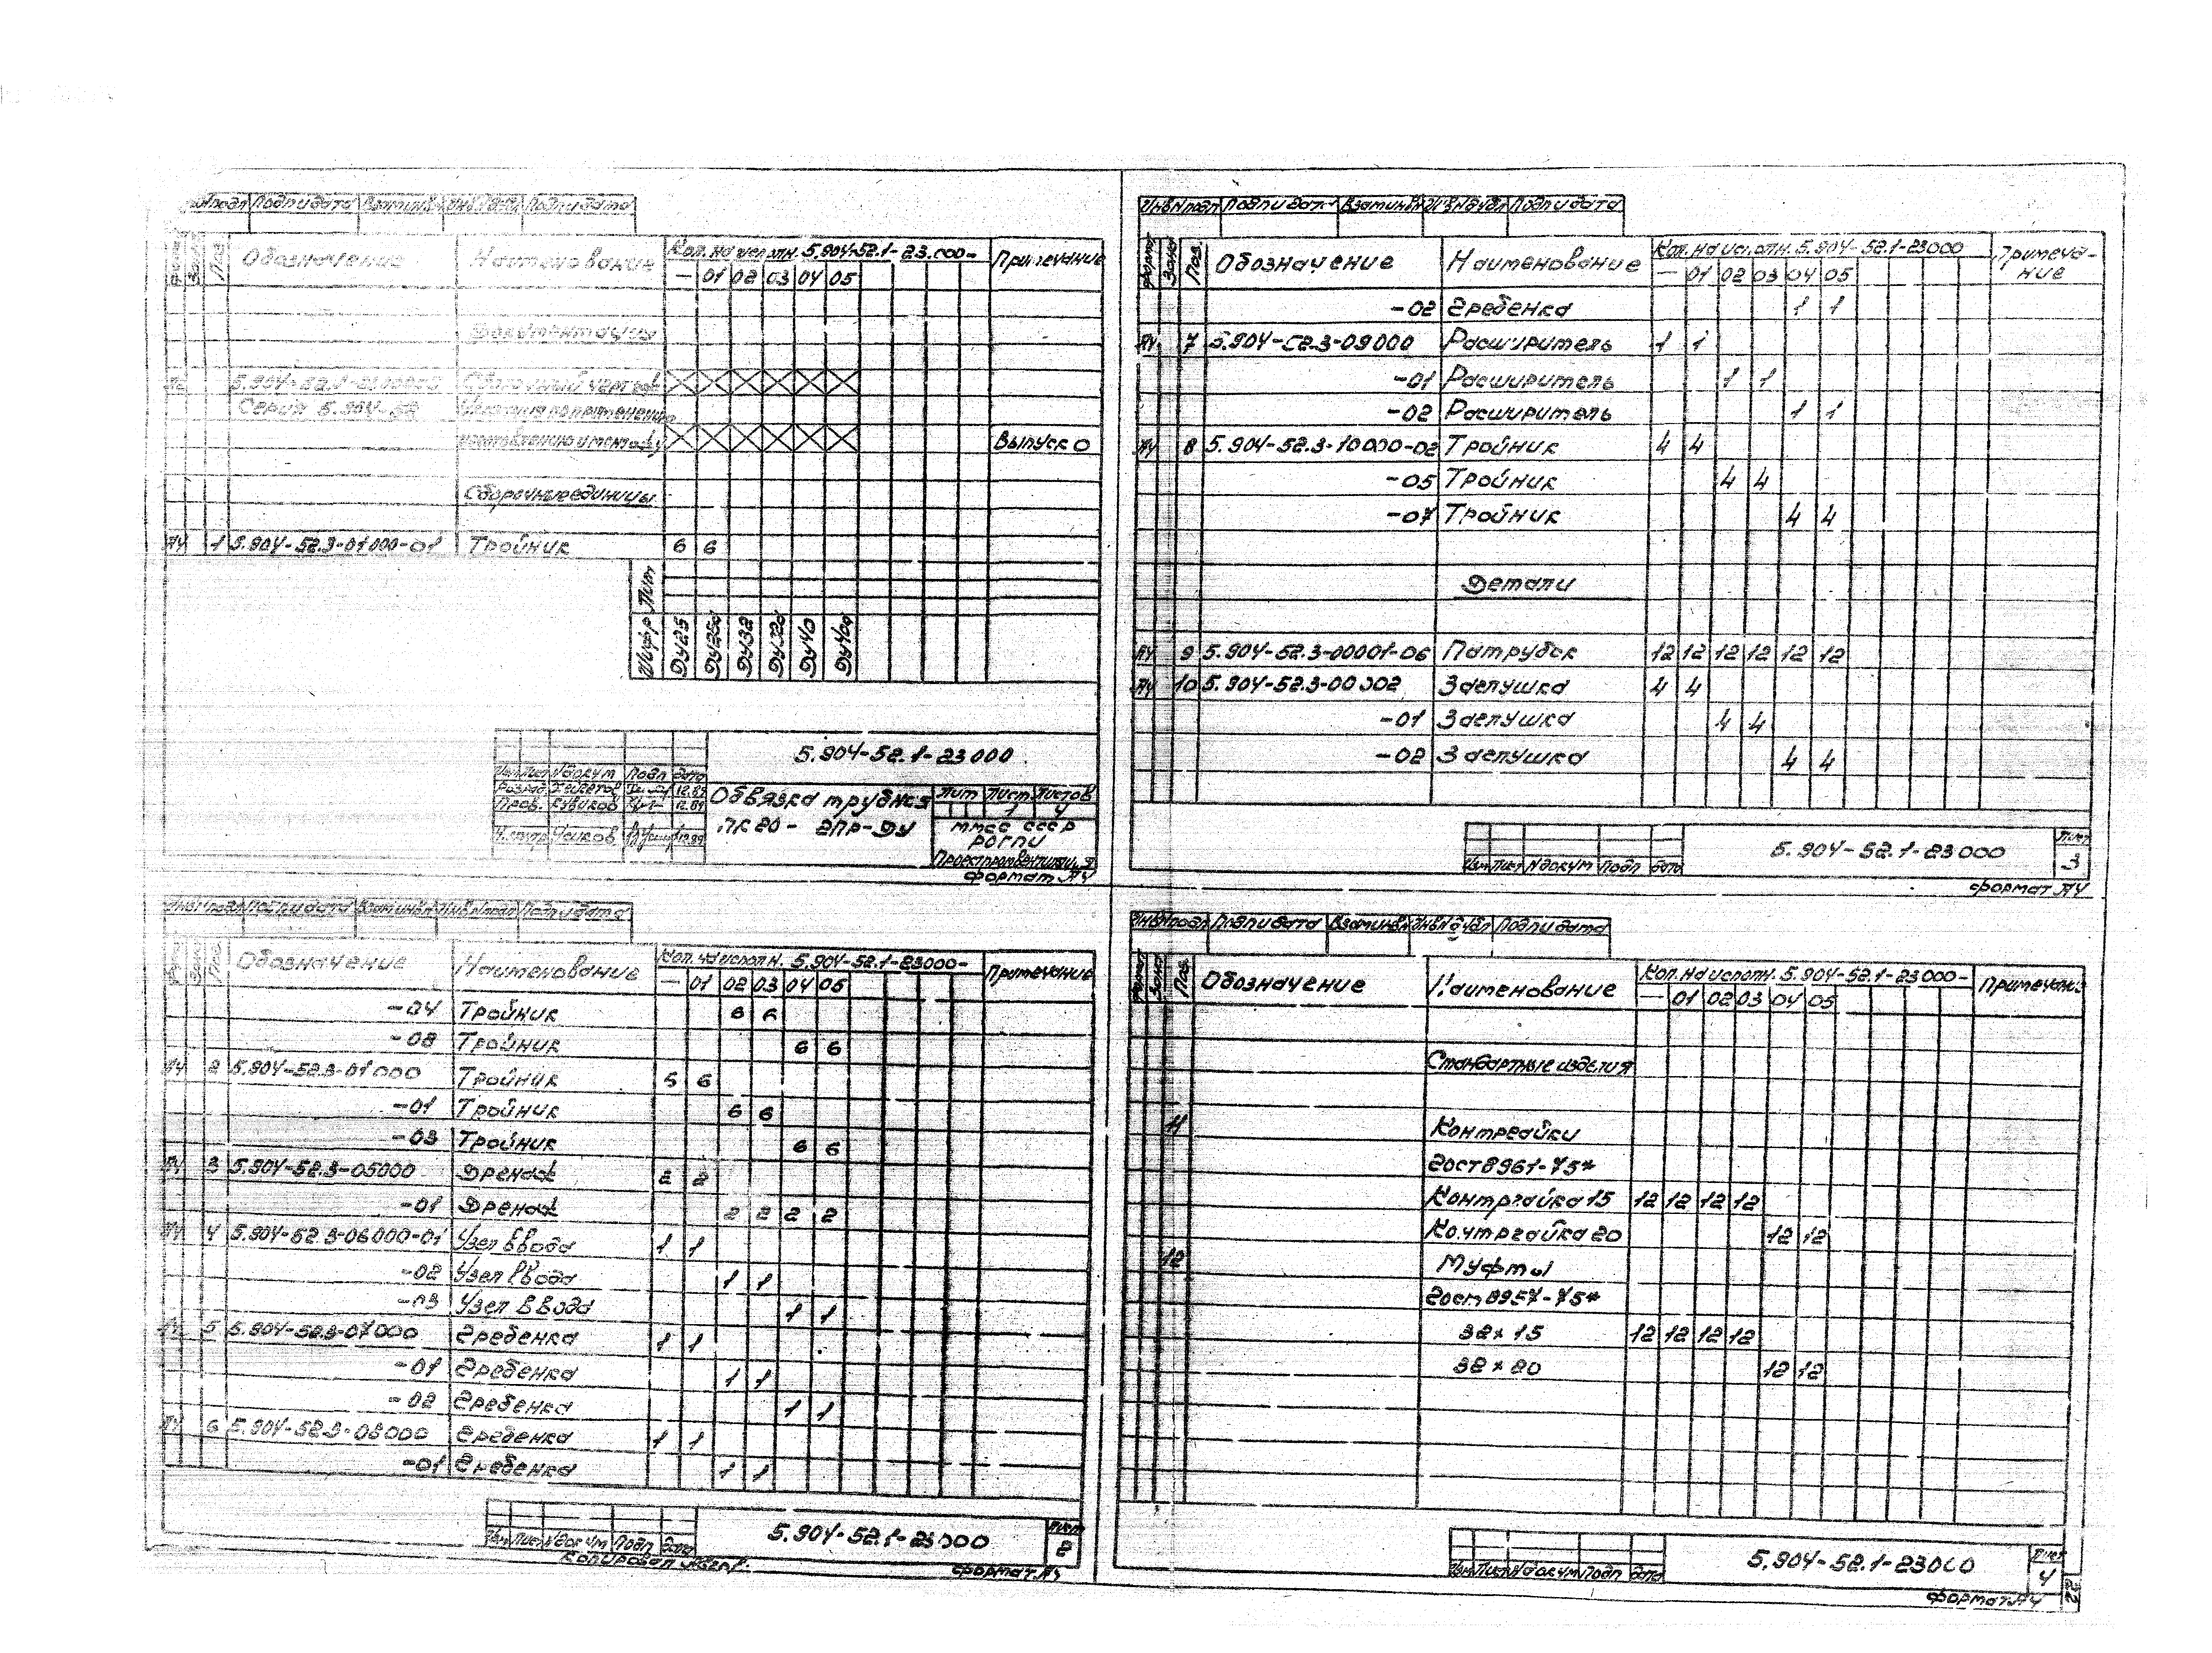 Подп и дата Подп и дата
Обозначение Наименование Кол. на исполн. 5.904-52.1-23.000- Примечание
— 01 02 03 04 05
Документация
Сборочный чертеж
Серия 5.904-52
Выпуск 0
Сборочные единицы
А4 1 5.904-52.3-01000-01 Тройник 6 6
Лит
Шифр Ду25 Ду25а Ду32 Ду32а Ду40 Ду40а
5.904-52.1-23000
Изм Лист N докум Подп Дата
Разраб 12.89
Пров. 12.89
Н.контр 12.89
Обвязка трубная
ПК 20 - 2ПР-ДУ
Лит Лист Листов
1 4
ММСС СССР
РОГПИ
Проектпромвентиляция
формат А4
Подп и дата Взам инв N Подп и дата
Обозначение Наименование Кол. на исполн. 5.904-52.1-23000- Примечание
— 01 02 03 04 05
-04 Тройник 6 6
-08 Тройник 6 6
А4 2 5.904-52.3-01000 Тройник 5 6
-01 Тройник 6 6
-03 Тройник 6 6
А4 3 5.904-52.3-05000 Дренаж 2 2
-01 Дренаж 2 2 2 2
А4 4 5.904-52.3-06000-01 Узел ввода 1 1
-02 Узел ввода 1 1
-03 Узел ввода 1 1
А4 5 5.904-52.3-07000 Гребенка 1 1
-01 Гребенка 1 1
-02 Гребенка 1 1
А4 6 5.904-52.3-08000 Гребенка 1 1
-01 Гребенка 1 1
5.904-52.1-23000 Лист
2
Изм Лист N докум Подп Дата
Копировал
формат А4
Инв N подл Подп и дата Взам инв N Инв N дубл Подп и дата
Формат Зона Поз. Обозначение Наименование Кол. на исполн. 5.904-52.1-23000 Примеча-
ние
— 01 02 03 04 05
-02 Гребенка 1 1
А4 7 5.904-52.3-09000 Расширитель 1 1
-01 Расширитель 1 1
-02 Расширитель 1 1
А4 8 5.904-52.3-10000-02 Тройник 4 4
-05 Тройник 4 4
-07 Тройник 4 4
Детали
А4 9 5.904-52.3-00001-06 Патрубок 12 12 12 12 12 12
А4 10 5.904-52.3-00002 Заглушка 4 4
-01 Заглушка 4 4
-02 Заглушка 4 4
5.904-52.1-23000 Лист
3
Изм Лист N докум Подп Дата
формат А4
Инв N подл Подп и дата Взам инв N Инв N дубл Подп и дата
Формат Зона Поз. Обозначение Наименование Кол. на исполн. 5.904-52.1-23000- Примечание
— 01 02 03 04 05
Стандартные изделия
11 Контргайки
ГОСТ 8961-75*
Контргайка 15 12 12 12 12
Контргайка 20 12 12
12 Муфты
ГОСТ 8957-75*
32 х 15 12 12 12 12
32 х 20 12 12
5.904-52.1-23000 Лист
4
Изм Лист N докум Подп Дата
формат А4
22